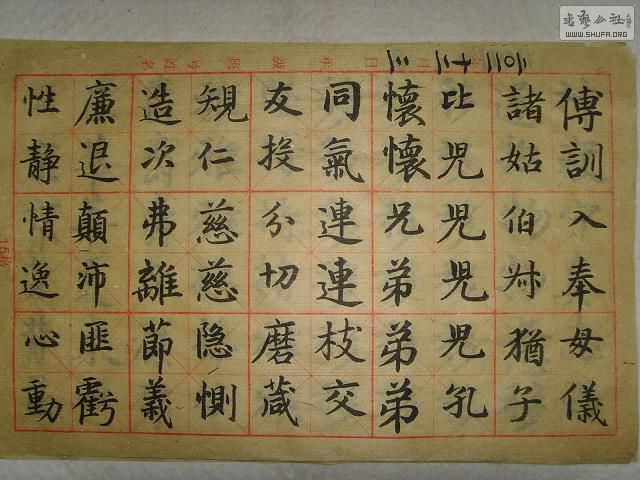 傅訓入奉母儀
諸姑伯叔猶子
比兒兒兒兒孔
懷懷兄弟弟弟
同氣連連枝交
友投分切磨葴
規仁慈慈隐惻
造次弗離莭義
廉退顛沛匪虧
性静情逸心動
书艺公社
WWW.SHUFA.ORG